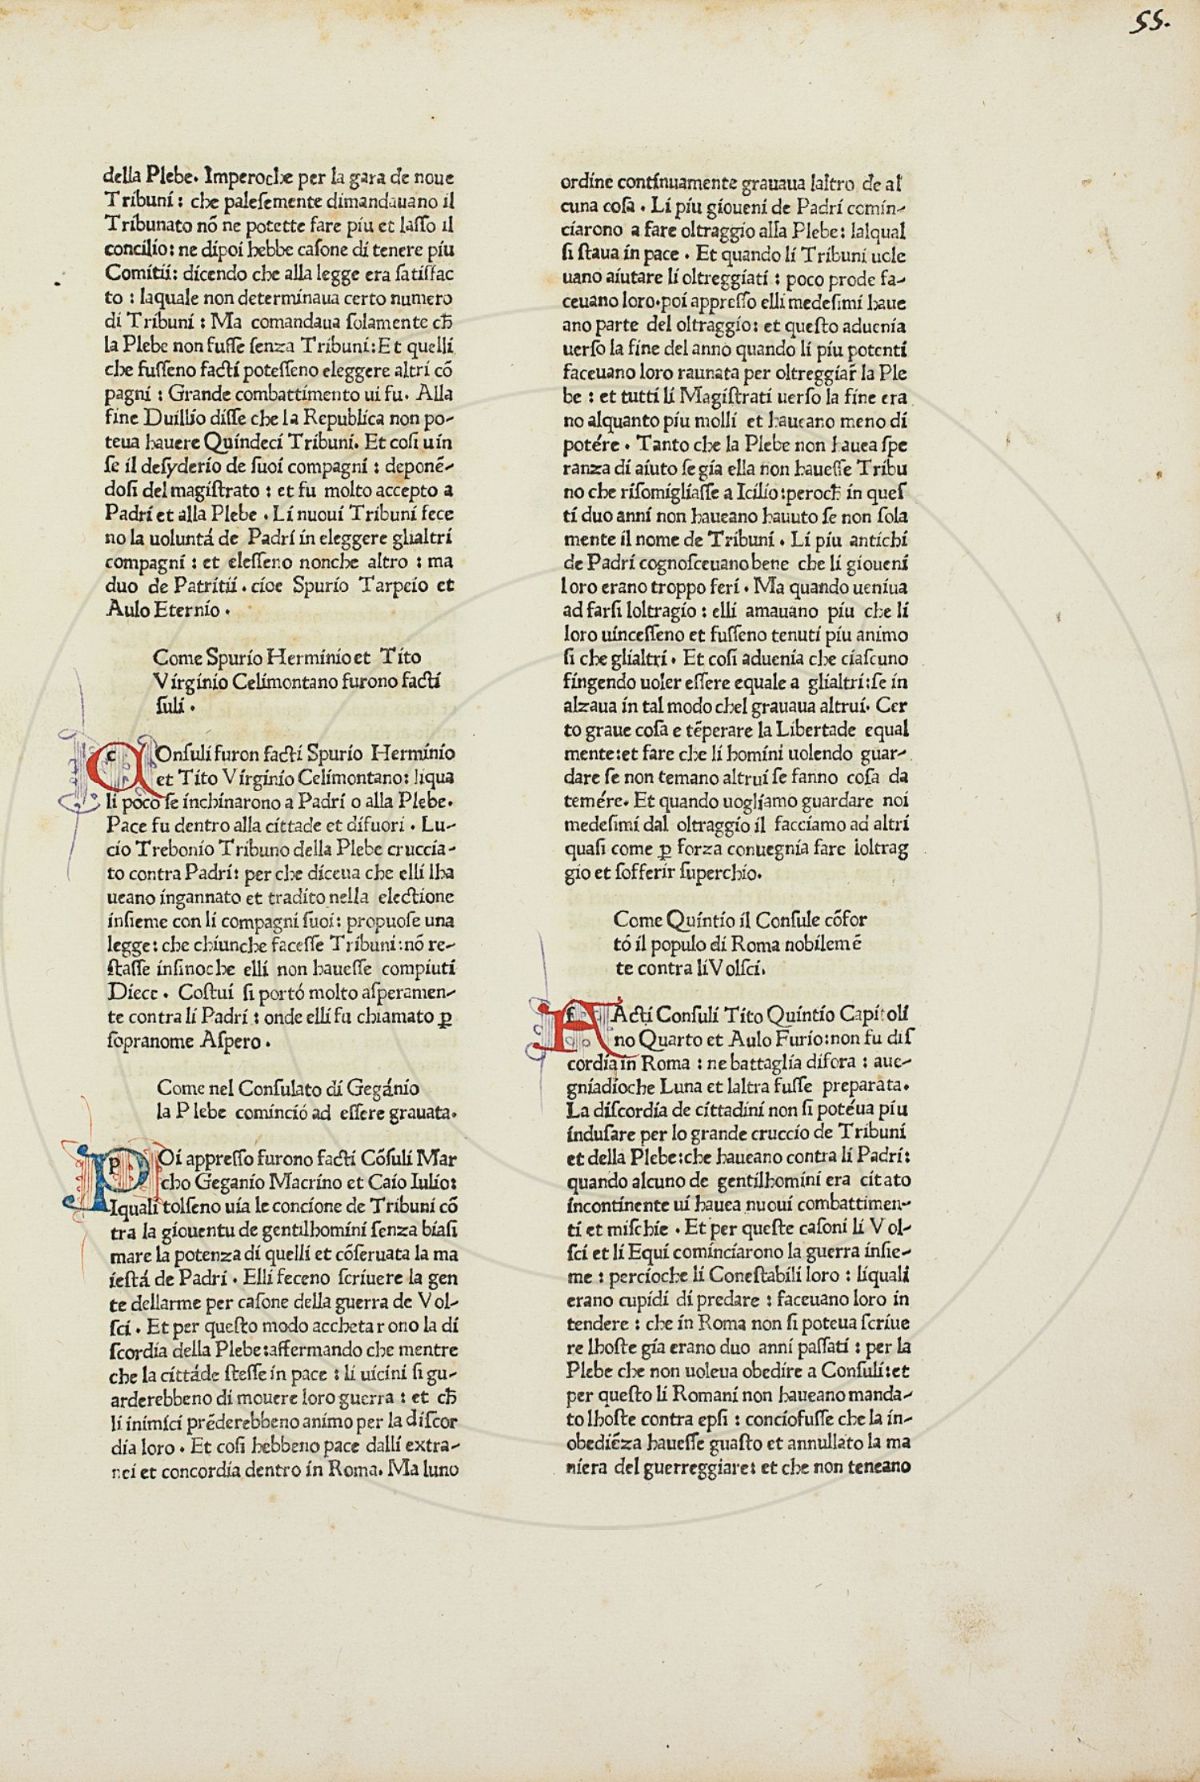 55.
della Plebe. Imperoche per la gara de noue
Tribuni: che paleſemente dimandauano il
Tribunato nō ne potette fare piu et laſſo il
concilio: ne dipoi hebbe caſone di tenere piu
Comitii: dicendo che alla legge era ſatiſfac
to: laquale non determinaua certo numero
di Tribuni: Ma comandaua ſolamente cħ
la Plebe non fuſſe ſenza Tribuni: Et quelli
che fuſſeno facti poteſſeno eleggere altri cō
pagni: Grande combattimento ui fu. Alla
fine Duillio diſſe che la Republica non po-
teua hauere Quindeci Tribuni. Et coſi uin
ſe il deſyderio de ſuoi compagni: deponē-
doſi del magiſtrato: et fu molto accepto a
Padri et alla Plebe. Li nuoui Tribuni fece
no la uoluntá de Padri in eleggere glialtri
compagni: et eleſſeno nonche altro: ma
duo de Patritii. cioe Spurio Tarpeio et
Aulo Eternio.
Come Spurio Herminio et Tito
Virginio Celimontano furono facti
ſuli.
COnſuli furon facti Spurio Herminio
et Tito Virginio Celimontano: liqua
li poco ſe inchinarono a Padri o alla Plebe.
Pace fu dentro alla cittade et difuori. Lu-
cio Trebonio Tribuno della Plebe cruccia-
to contra Padri: per che diceua che elli lha
ueano ingannato et tradito nella electione
inſieme con li compagni ſuoi: propuoſe una
legge: che chiunche faceſſe Tribuni: nō re-
ſtaſſe inſinoche elli non haueſſe compiuti
Diece. Coſtui ſi portó molto aſperamen-
te contra li Padri: onde elli fu chiamato ꝑ
ſopranome Aſpero.
Come nel Conſulato di Gegánio
la Plebe cominció ad eſſere grauata.
POi appreſſo furono facti Cōſuli Mar
cho Geganio Macrino et Caio Iulio:
Iquali tolſeno uia le concione de Tribuni cō
tra la giouentu de gentilhomini ſenza biaſi
mare la potenza di quelli et cōſeruata la ma
ieſtá de Padri. Elli feceno ſcriuere la gen
te dellarme per caſone della guerra de Vol-
ſci. Et per queſto modo acchetarono la di
ſcordia della Plebe: affermando che mentre
che la cittáde ſteſſe in pace: li uicini ſi gu-
arderebbeno di mouere loro guerra: et cħ
li inimici prēderebbeno animo per la diſcor
dia loro. Et coſi hebbeno pace dalli extra-
nei et concordia dentro in Roma. Ma luno
ordine continuamente grauaua laltro de al
cuna coſa. Li piu gioueni de Padri comin-
ciarono a fare oltraggio alla Plebe: lalqual
ſi ſtaua in pace. Et quando li Tribuni uole
uano aiutare li oltreggiati: poco prode fa-
ceuano loro. poi appreſſo elli medeſimi haue
ano parte del oltraggio: et queſto aduenia
uerſo la fine del anno quando li piu potenti
faceuano loro raunata per oltreggiar̃ la Ple
be: et tutti li Magiſtrati uerſo la fine era
no alquanto piu molli et haueano meno di
potére. Tanto che la Plebe non hauea ſpe
ranza di aiuto ſe gia ella non haueſſe Tribu
no che riſomigliaſſe a Icilio: perocħ in queſ
ti duo anni non haueano hauuto ſe non ſola
mente il nome de Tribuni. Li piu antichi
de Padri cognoſceuano bene che li gioueni
loro erano troppo feri. Ma quando ueniua
ad farſi loltragio: elli amauano piu che li
loro uinceſſeno et fuſſeno tenuti piu animo
ſi che glialtri. Et coſi aduenia che ciaſcuno
fingendo uoler eſſere equale a glialtri: ſe in
alzaua in tal modo chel grauaua altrui. Cer
to graue coſa e tēperare la Libertade equal
mente: et fare che li homini uolendo guar-
dare ſe non temano altrui ſe fanno coſa da
temére. Et quando uogliamo guardare noi
medeſimi dal oltraggio il facciamo ad altri
quaſi come ꝑ forza conuegnia fare ioltrag
gio et ſofferir ſuperchio.
Come Quintio il Conſule cōfor
tó il populo di Roma nobilemē
te contra li Volſci.
FActi Conſuli Tito Quintio Capitoli
no Quarto et Aulo Furio: non fu diſ
cordia in Roma: ne battaglia difora: aue-
gniadioche Luna et laltra fuſſe preparata.
La diſcordia de cittadini non ſi potéua piu
induſare per lo grande cruccio de Tribuni
et della Plebe: che haueano contra li Padri:
quando alcuno de gentilhomini era citato
incontinente ui hauea nuoui combattimen-
ti et miſchie. Et per queſte caſoni li Vol-
ſci et li Equi cominciarono la guerra inſie-
me: percioche li Coneſtabili loro: liquali
erano cupidi di predare: faceuano loro in
tendere: che in Roma non ſi poteua ſcriue
re lhoſte gia erano duo anni paſſati: per la
Plebe che non uoleua obedire a Conſuli: et
per queſto li Romani non haueano manda-
to lhoſte contra epſi: conciofuſſe che la in-
obediēza haueſſe guaſto et annullato la ma
niera del guerreggiare: et che non teneano